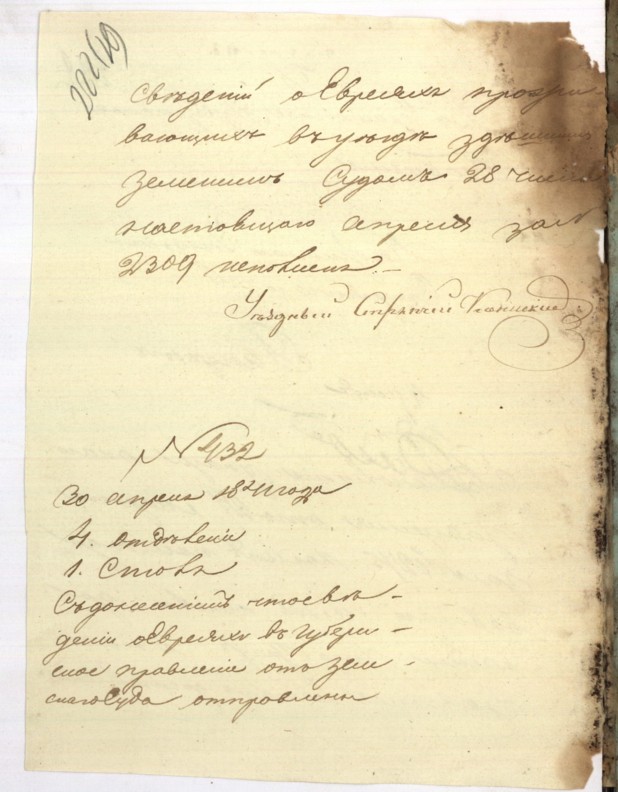 222/29
свѣденій о Евреяхъ прожи
вающихъ въ уѣздѣ здѣшнимъ
земскимъ Судомъ 28 числа
настоящаго апреля за №
2309 исполнено.
Уѣздный Стряпчій
№ 432
30 апреля 1841 года
4. отдѣленія
1. Стола
Съ донесеніемъ что свѣ-
денія о Евреяхъ въ Губерн-
ское правленіе отъ зем-
скаго Суда отправлены